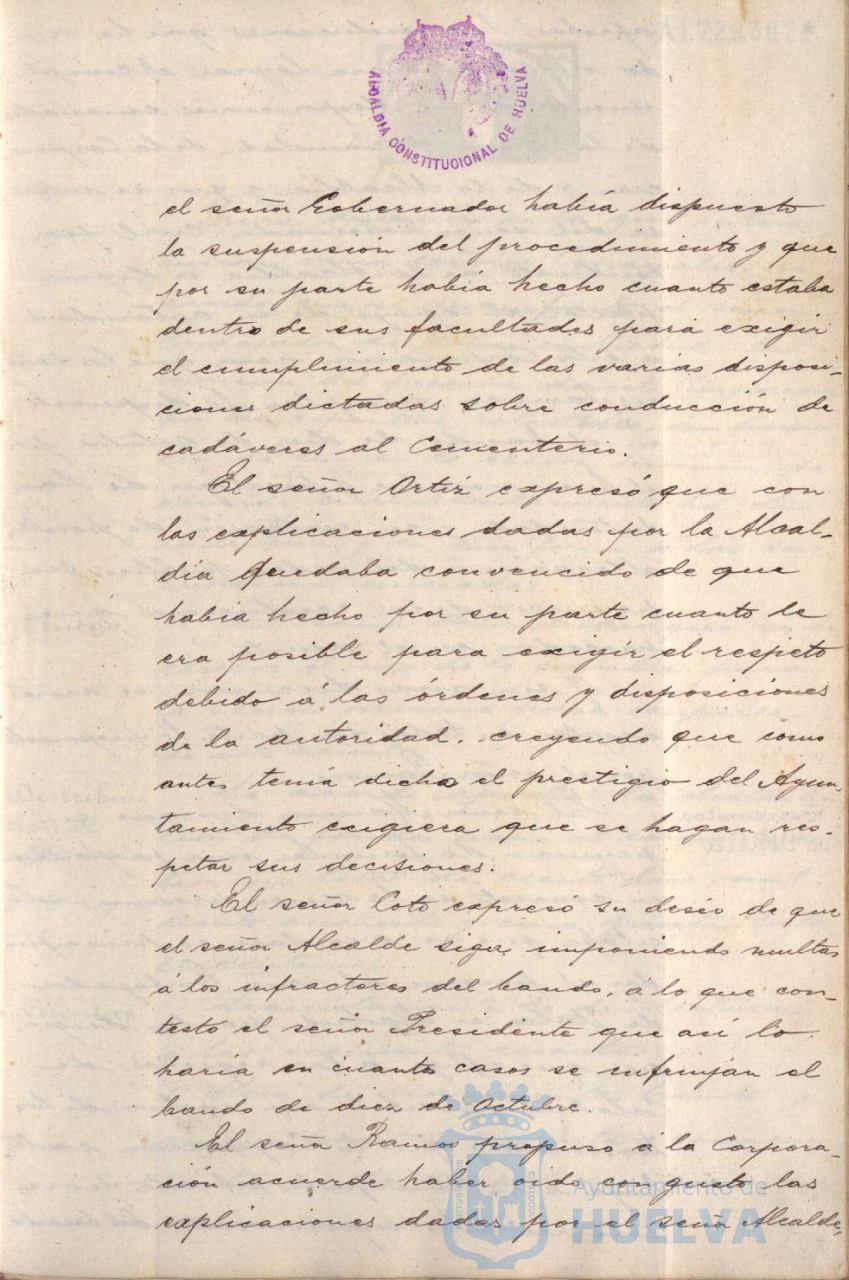 ALCALDIA CONSTITUCIONAL DE HUELVA
el señor Gobernador había dispuesto
la suspensión del procedimiento y que
por su parte había hecho cuanto estaba
dentro de sus facultades para exigir
el cumplimiento de las varias disposi-
ciones dictadas sobre conducción de
cadáveres al Cementerio.
El señor Ortiz expresó que con
las explicaciones dadas por la Alcal-
día quedaba convencido de que
había hecho por su parte cuanto le
era posible para exigir el respeto
debido á las órdenes y disposiciones
de la autoridad. creyendo que como
antes tenía dicho el prestigio del Ayun-
tamiento exigiera que se hagan res-
petar sus decisiones.
El señor Coto expresó su deseo de que
el señor Alcalde siga imponiendo multas
á los infractores del bando, á lo que con-
testó el señor Presidente que así lo
haría en cuantos casos se infrinjan el
bando de diez de Octubre.
El señor Ramos propuso á la Corpora-
ción acuerde haber oido con gusto las
explicaciones dadas por el señor Alcalde,
Ayuntamiento de
HUELVA